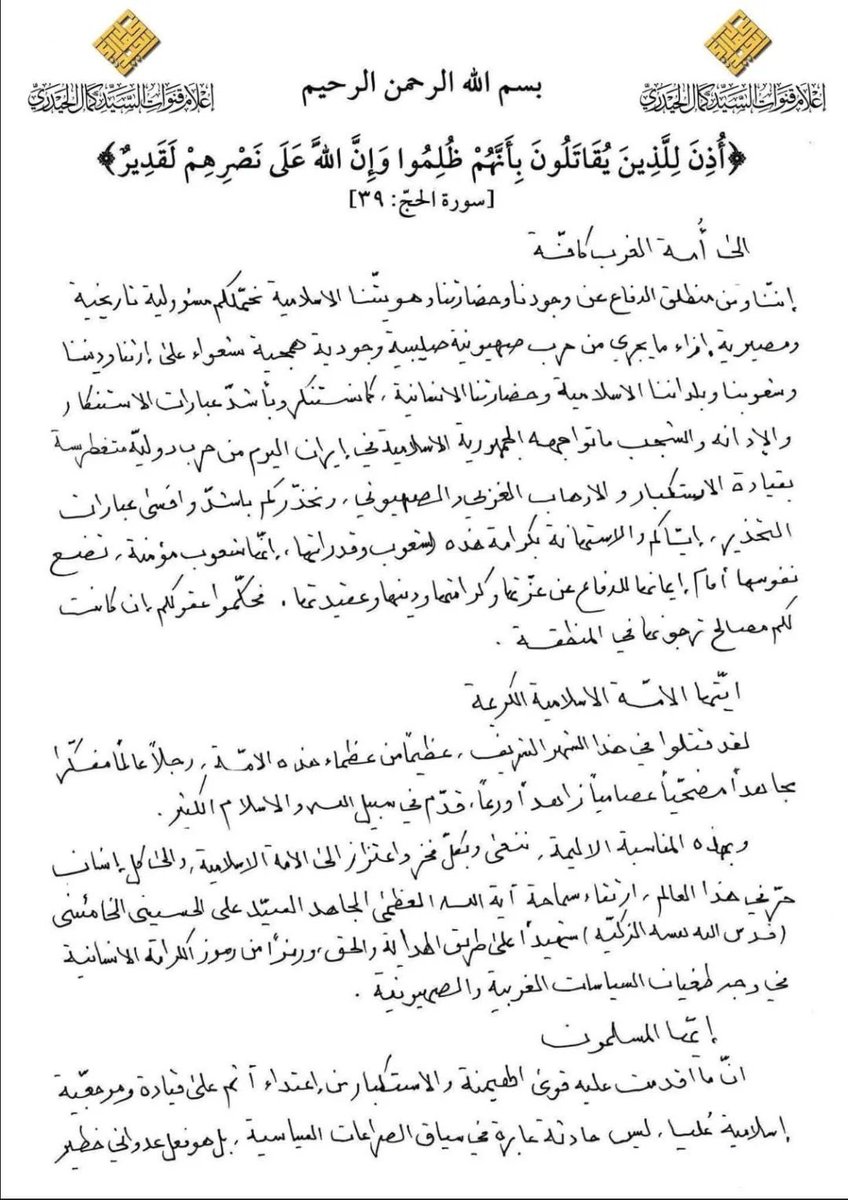 إعلام قنوات السيد كمال الحيدري
إعلام قنوات السيد كمال الحيدري
بسم الله الرحمن الرحيم
﴿أُذِنَ لِلَّذِينَ يُقَاتَلُونَ بِأَنَّهُمْ ظُلِمُوا وَإِنَّ اللَّهَ عَلَى نَصْرِهِمْ لَقَدِيرٌ﴾
[سورة الحجّ: ٣٩]
الى أُمة الغرب كافّة
إننّا ومن منطلق الدفاع عن وجودنا وحضارتنا وهويتّنا الاسلامية نحمّلكم مسؤولية تاريخية
ومصيرية إزاء ما يجري من حرب صهيونية صليبية وجودية همجية شعواء على إرثنا وديننا
وشعوبنا وبلداننا الاسلامية وحضارتنا الانسانية، كما نستنكر وبأشدّ عبارات الاستنكار
والإدانه والشجب ما تواجهه الجمهورية الاسلامية في إيران اليوم من حرب دوليّة متغطرسة
بقيادة الاستكبار والارهاب الغربي والصهيوني، ونحذّركم باشدّ واقسى عبارات
التحذير، إيّاكم والاستهانة بكرامة هذه الشعوب وقدراتها، إنّها شعوب مؤمنة، تضع
نفوسها أمام إيمانها للدفاع عن عزّتها وكرامتها ودينها وعقيدتها. فحكّموا عقولكم إن كانت
لكم مصالح ترجونها في المنطقة.
ايتّها الامّة الاسلامية الكريمة
لقد قتلوا في هذا الشهر الشريف، عظيماً من عظماء هذه الامّة، رجلاً عالماً مفكّرا
مجاهداً مضحّياً عصامياً زاهداً ورعاً، قدّم في سبيل الله والاسلام الكثير.
وبهذه المناسبة الاليمة، ننعى وبكلّ فخر واعتزاز الى الامة الاسلامية، والى كل إنسان
حرّ في هذا العالم، ارتقاء سماحة آية الله العظمى المجاهد السيّد علي الحسيني الخامنئي
(قدس الله نفسه الزكيّة) شهيداً على طريق الهداية والحق، ورمزاً من رموز الكرامة الانسانية
في وجه طغيان السياسات الغربية والصهيونية.
إيّها المسلمون
انّ ما أقدمت عليه قوى الهيمنة والاستكبار من إعتداء آثم على قيادة ومرجعيّة
إسلامية عُليا، ليس حادثة عابرة في سياق الصراعات السياسية، بل هو فعل عدواني خطير